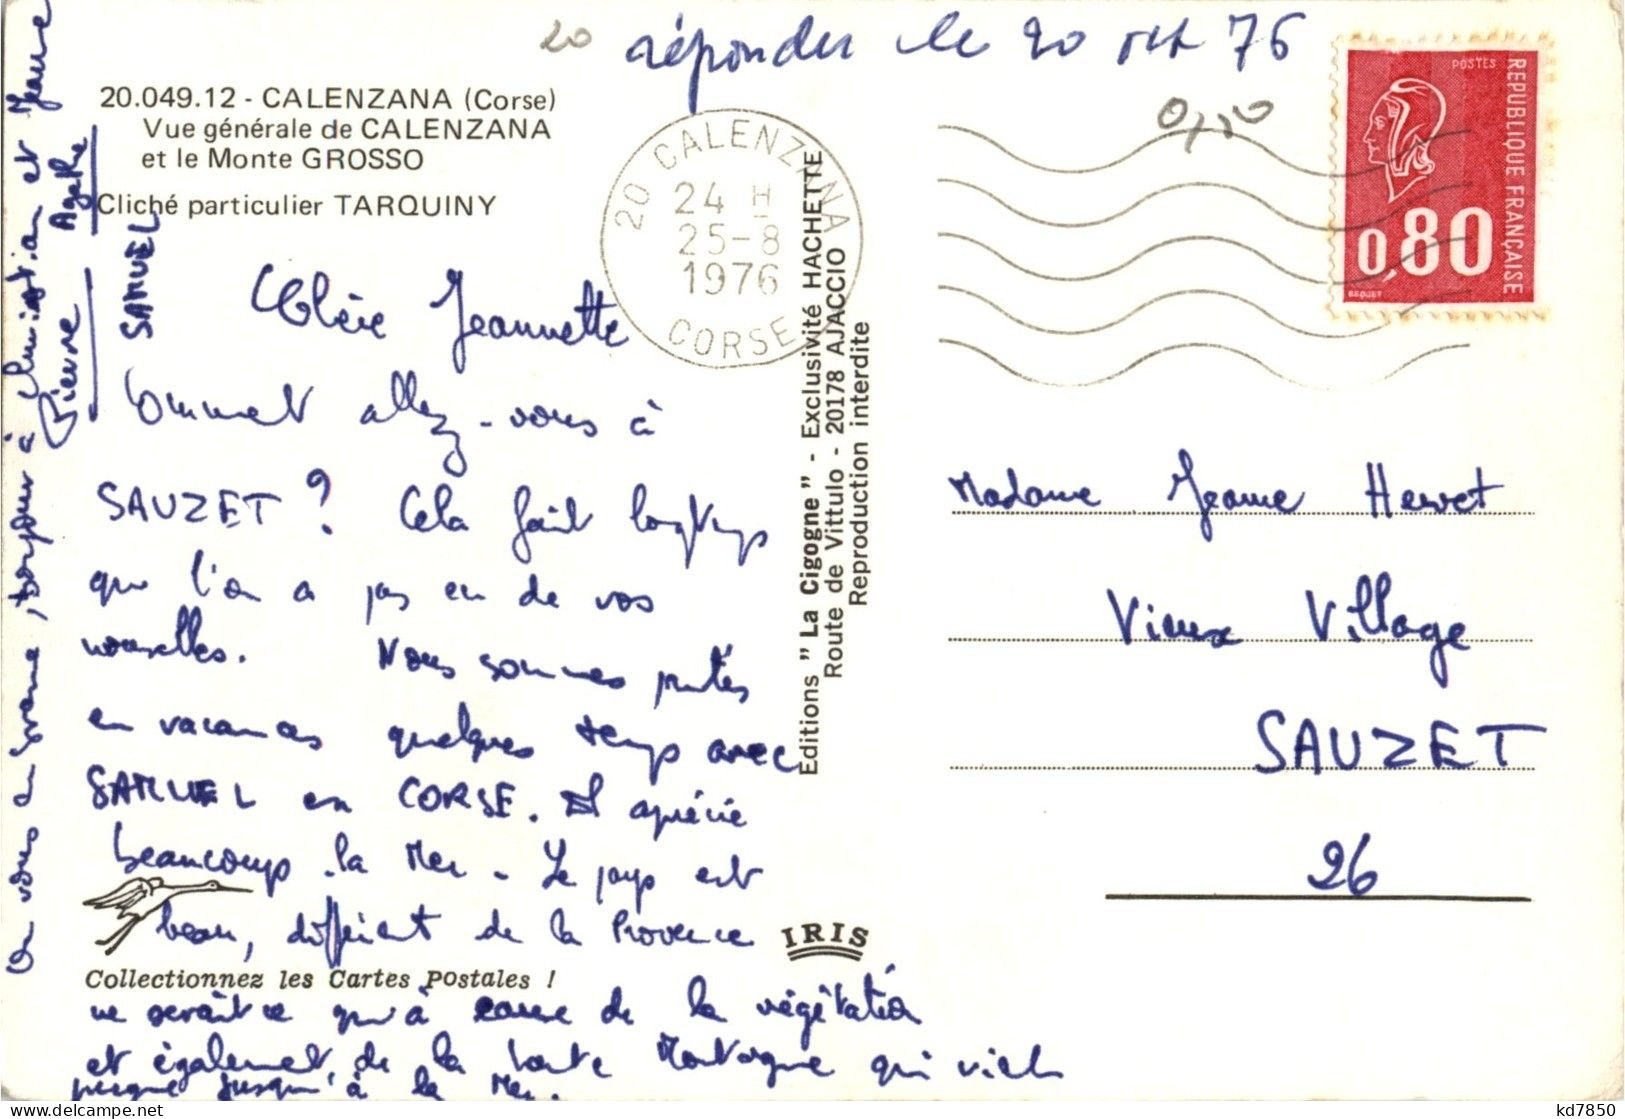 20 répondu le 20 oct 76
0,50
20.049.12 - CALENZANA (Corse)
Vue générale de CALENZANA
et le Monte GROSSO
Cliché particulier TARQUINY
20 CALENZANA
24 H
25-8
1976
CORSE
POSTES
REPUBLIQUE FRANÇAISE
0,80
BEQUET
Chère Jeannette
Comment allez-vous à
SAUZET ? Cela fait longtemps
que l'on a pas eu de vos
nouvelles. Nous sommes partis
en vacances quelques temps avec
SAMUEL en CORSE. Il apprécie
beaucoup la Mer - Le pays est
beau, différent de la Provence
ne serait ce qu'à cause de la végétation
et également de la haute Montagne qui vient
presque jusqu'à la Mer.
On vous embrasse, bonjour à Christian et Jeanne
Pierre Agathe
SAMUEL
Editions " La Cigogne " - Exclusivité HACHETTE
Route de Vittulo - 20178 AJACCIO
Reproduction interdite
IRIS
Collectionnez les Cartes Postales !
Madame Jeanne Hervet
Vieux Village
SAUZET
26
kd7850